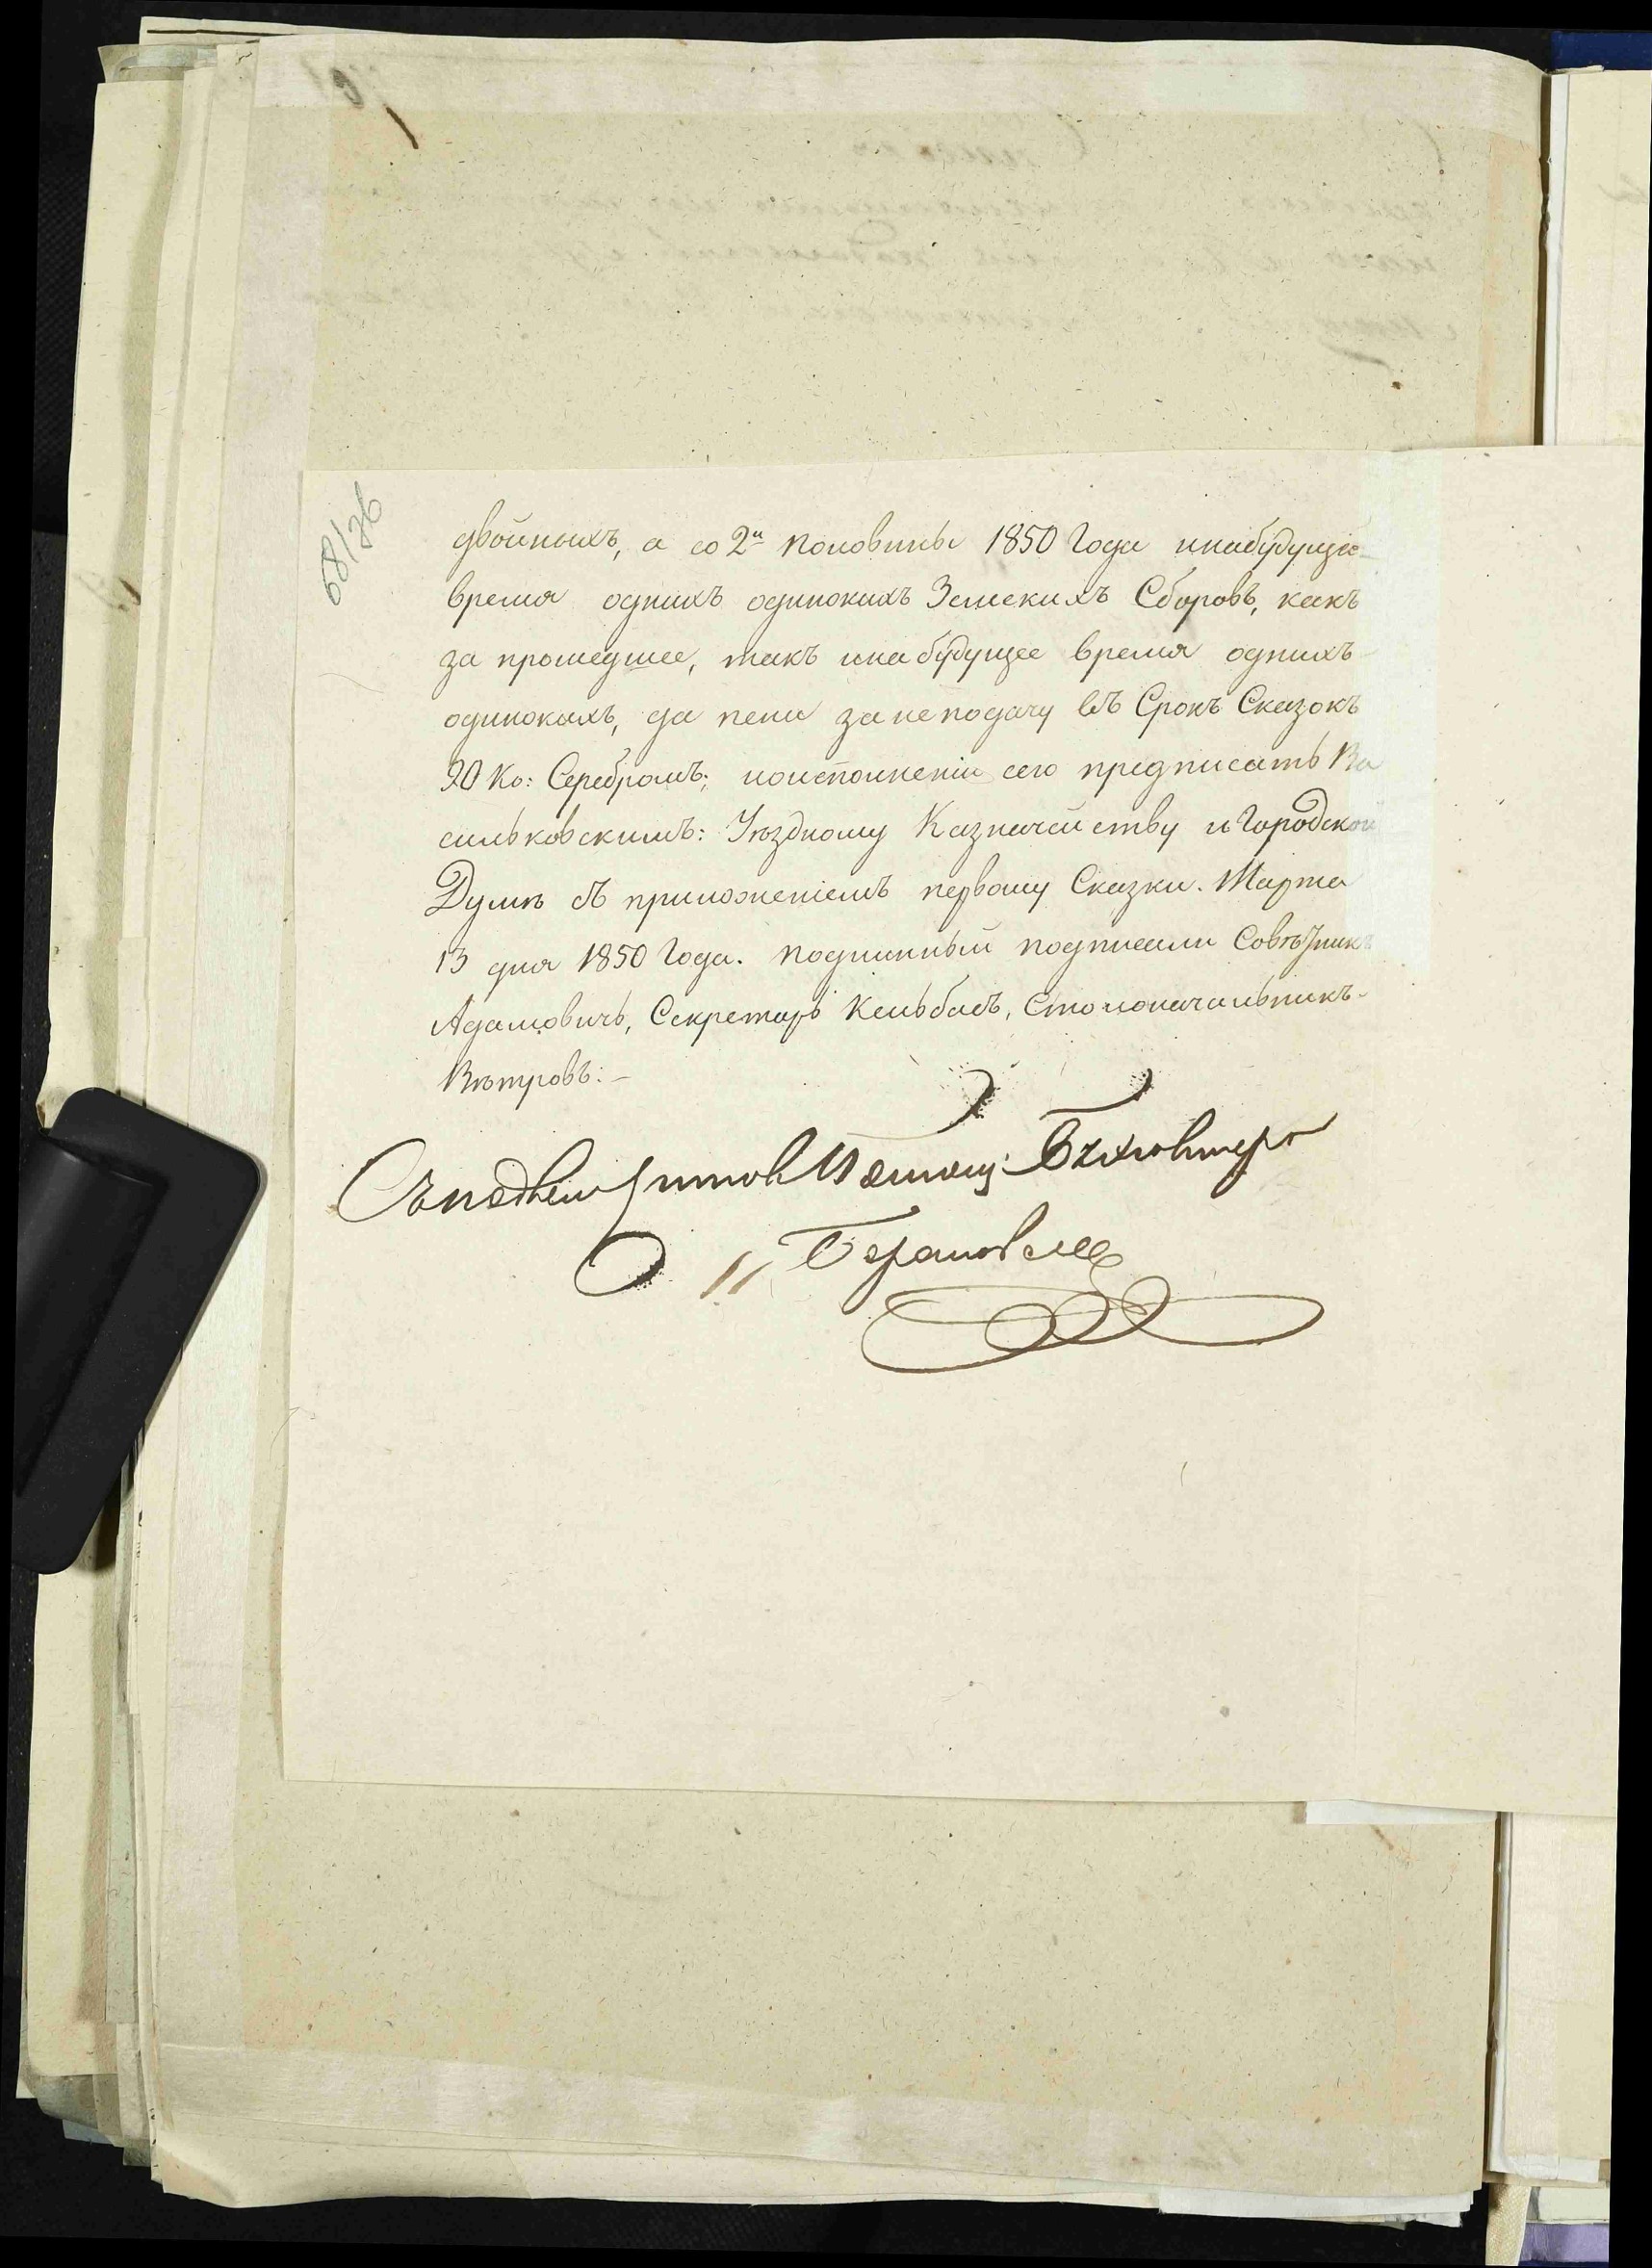 68/76
двойныхъ, а со 2й половины 1850 Года инабудущее
время однихъ одинокихъ Земскихъ Сборовъ, какъ
за прошедшее, такъ инабудущее время однихъ
одинокихъ, да пени занеподачу въ Срокъ Сказокъ
90 Ко: Серебромъ; иоисполненіи сего предписать Ва
сильковскимъ: Уѣздному Казначейству и Городской
Думѣ съ приложеніемъ первому Сказки. Марта
13 дня 1850 Года. подлинный подписали Совѣтникъ
Адамовичь, Секретарь Кельбасъ, Столоначальникъ
Вѣтровъ:-
Съ подлин Помощ: Бухгалтера